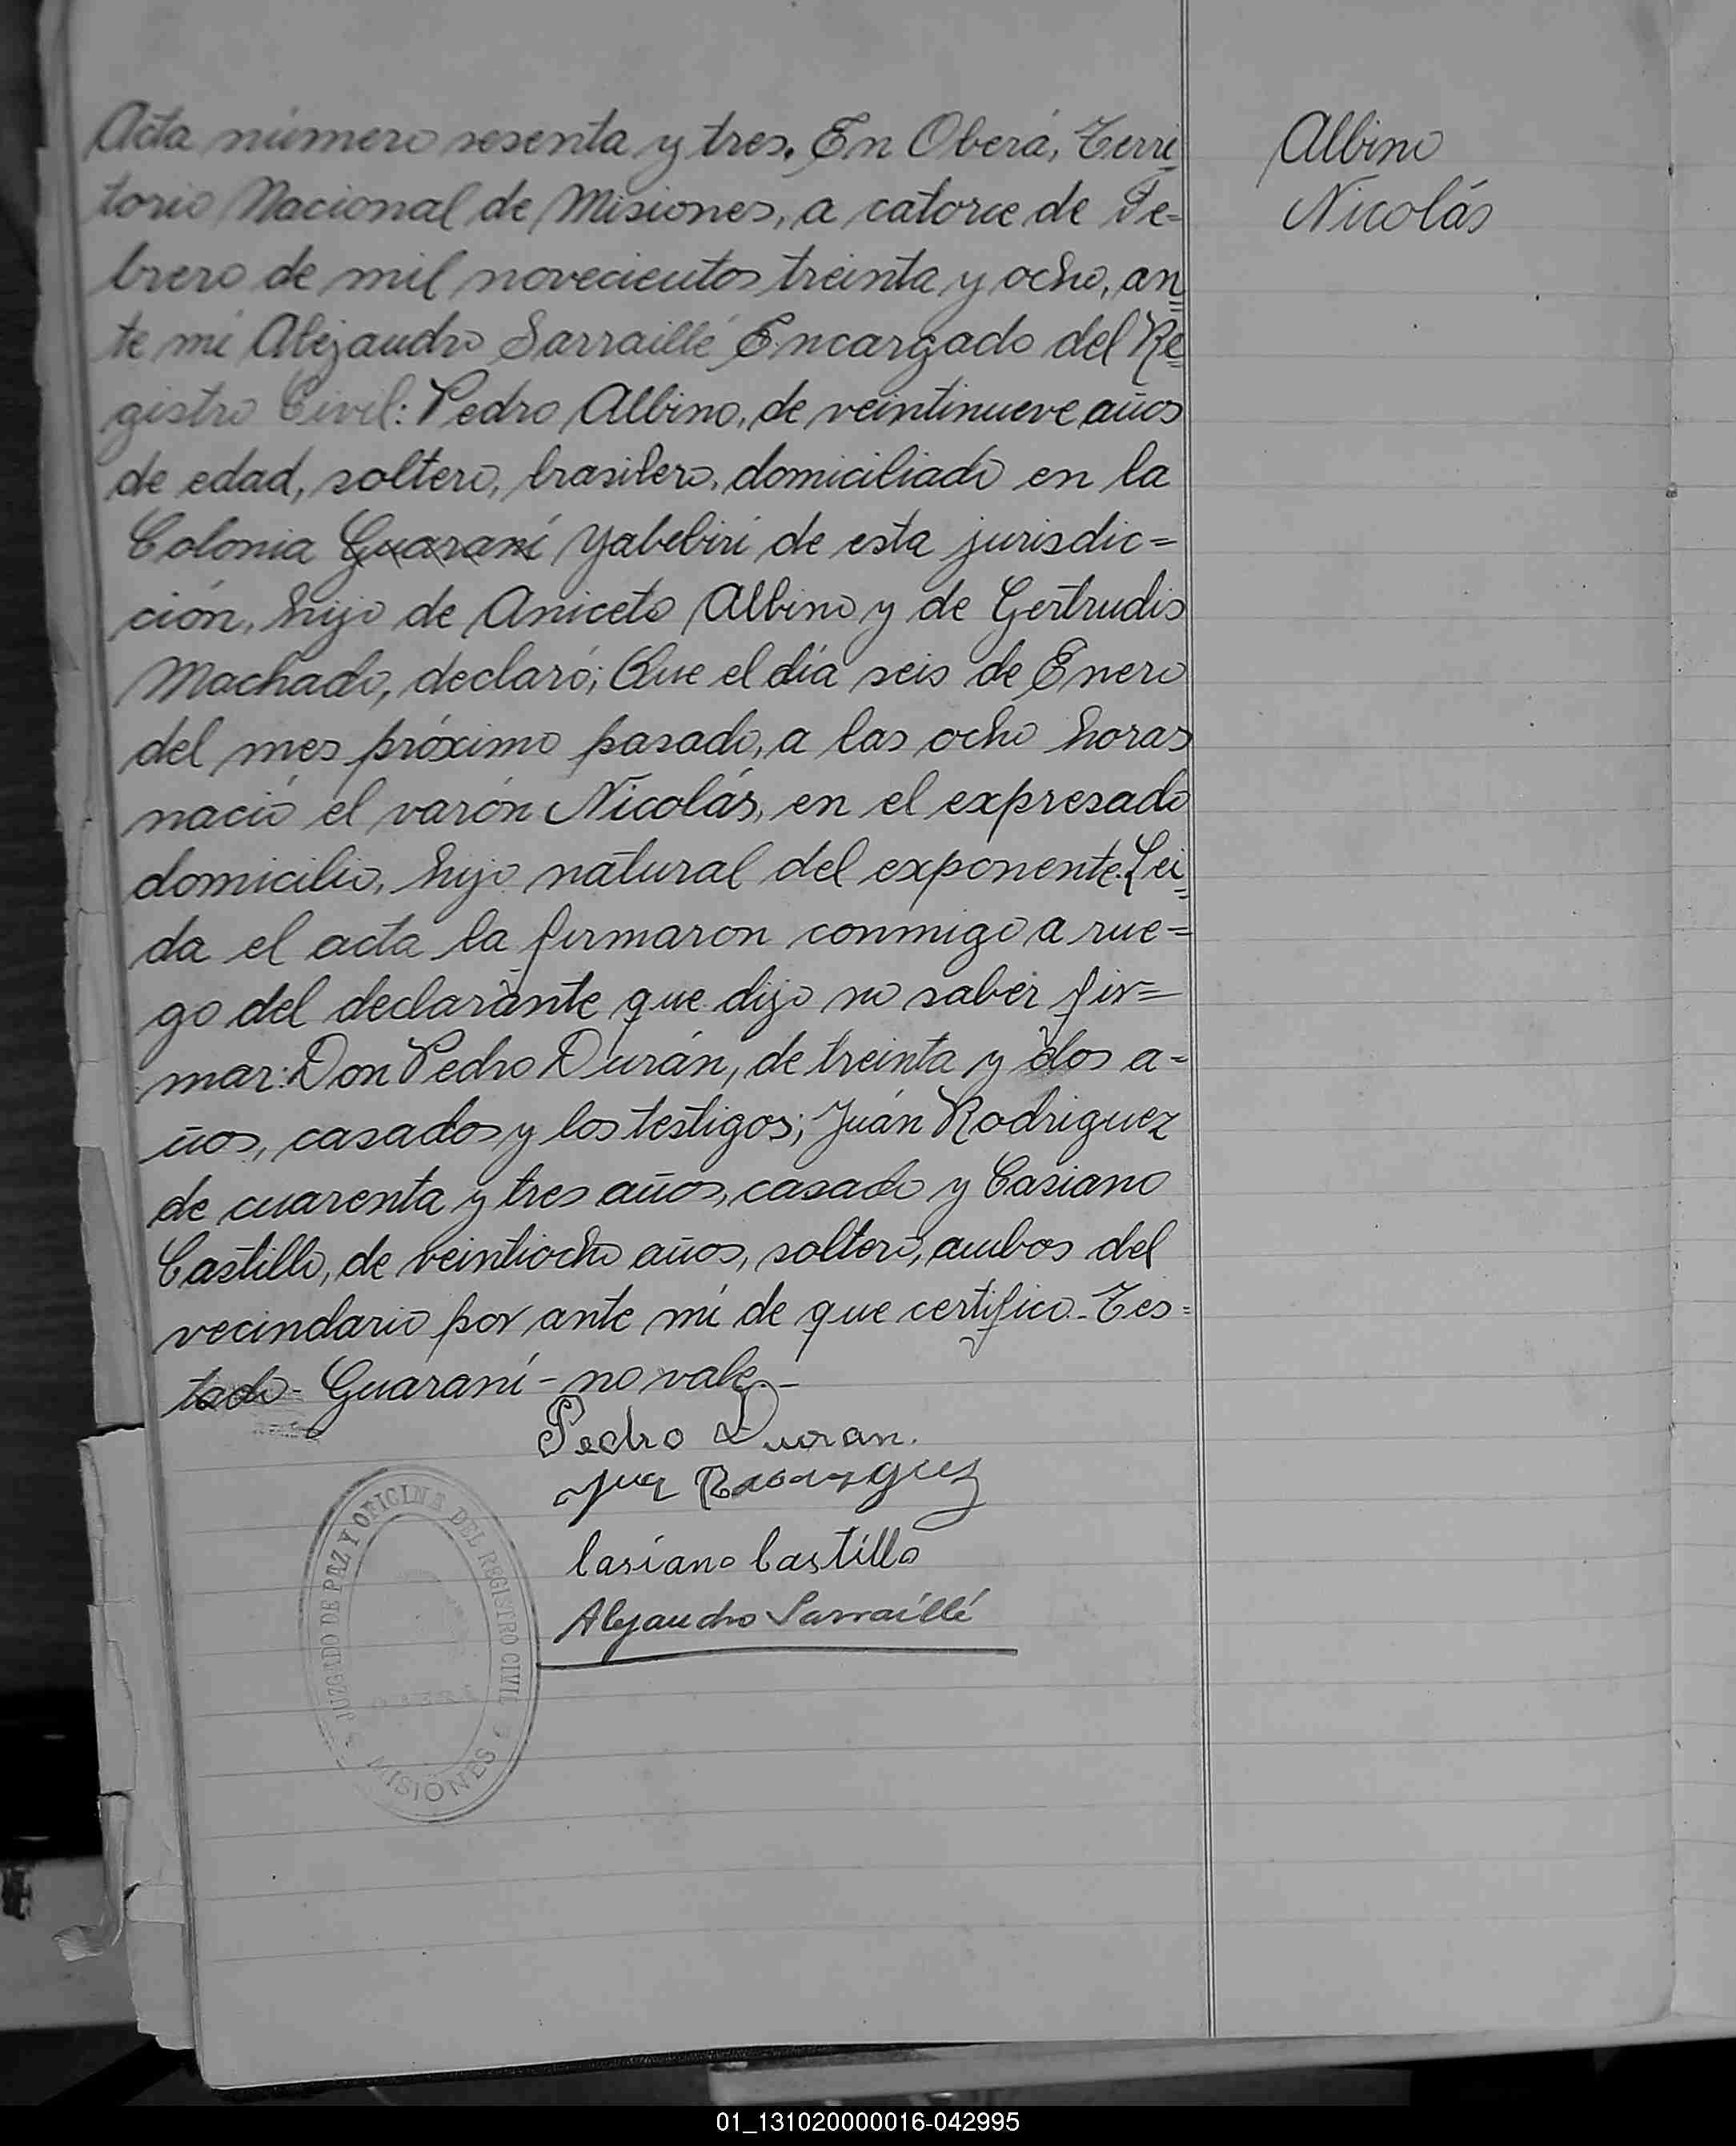 Acta número sesenta y tres. En Oberá, Terri-
torio Nacional de Misiones, a catorce de Fe-
brero de mil novecientos treinta y ocho, an=
te mí Alejandro Sarraillé Encargado del Re=
gistro Civil: Pedro Albino, de veintinueve años
de edad, soltero, brasilero, domiciliado en la
Colonia Guaraní Yabebirí de esta jurisdic=
ción, hijo de Aniceto Albino y de Gertrudis
Machado, declaró; Que el día seis de Enero
del mes próximo pasado, a las ocho horas
nació el varón Nicolás, en el expresado
domicilio, hijo natural del exponente. Leí=
da el acta la firmaron conmigo a rue=
go del declarante que dijo no saber fir=
mar: Don Pedro Durán, de treinta y dos a=
ños, casados y los testigos; Juán Rodriguez
de cuarenta y tres años, casado y Casiano
Castillo, de veintiocho años, soltero, ambos del
vecindario por ante mí de que certifico.- Tes=
tado- Guaraní - no vale.-
Pedro Duran.
Rodriguez
Casiano Castillo
Alejandro Sarraillé
JUZGADO DE PAZ Y OFICINA DEL REGISTRO CIVIL
MISIONES
Albino
Nicolás
01_131020000016-042995